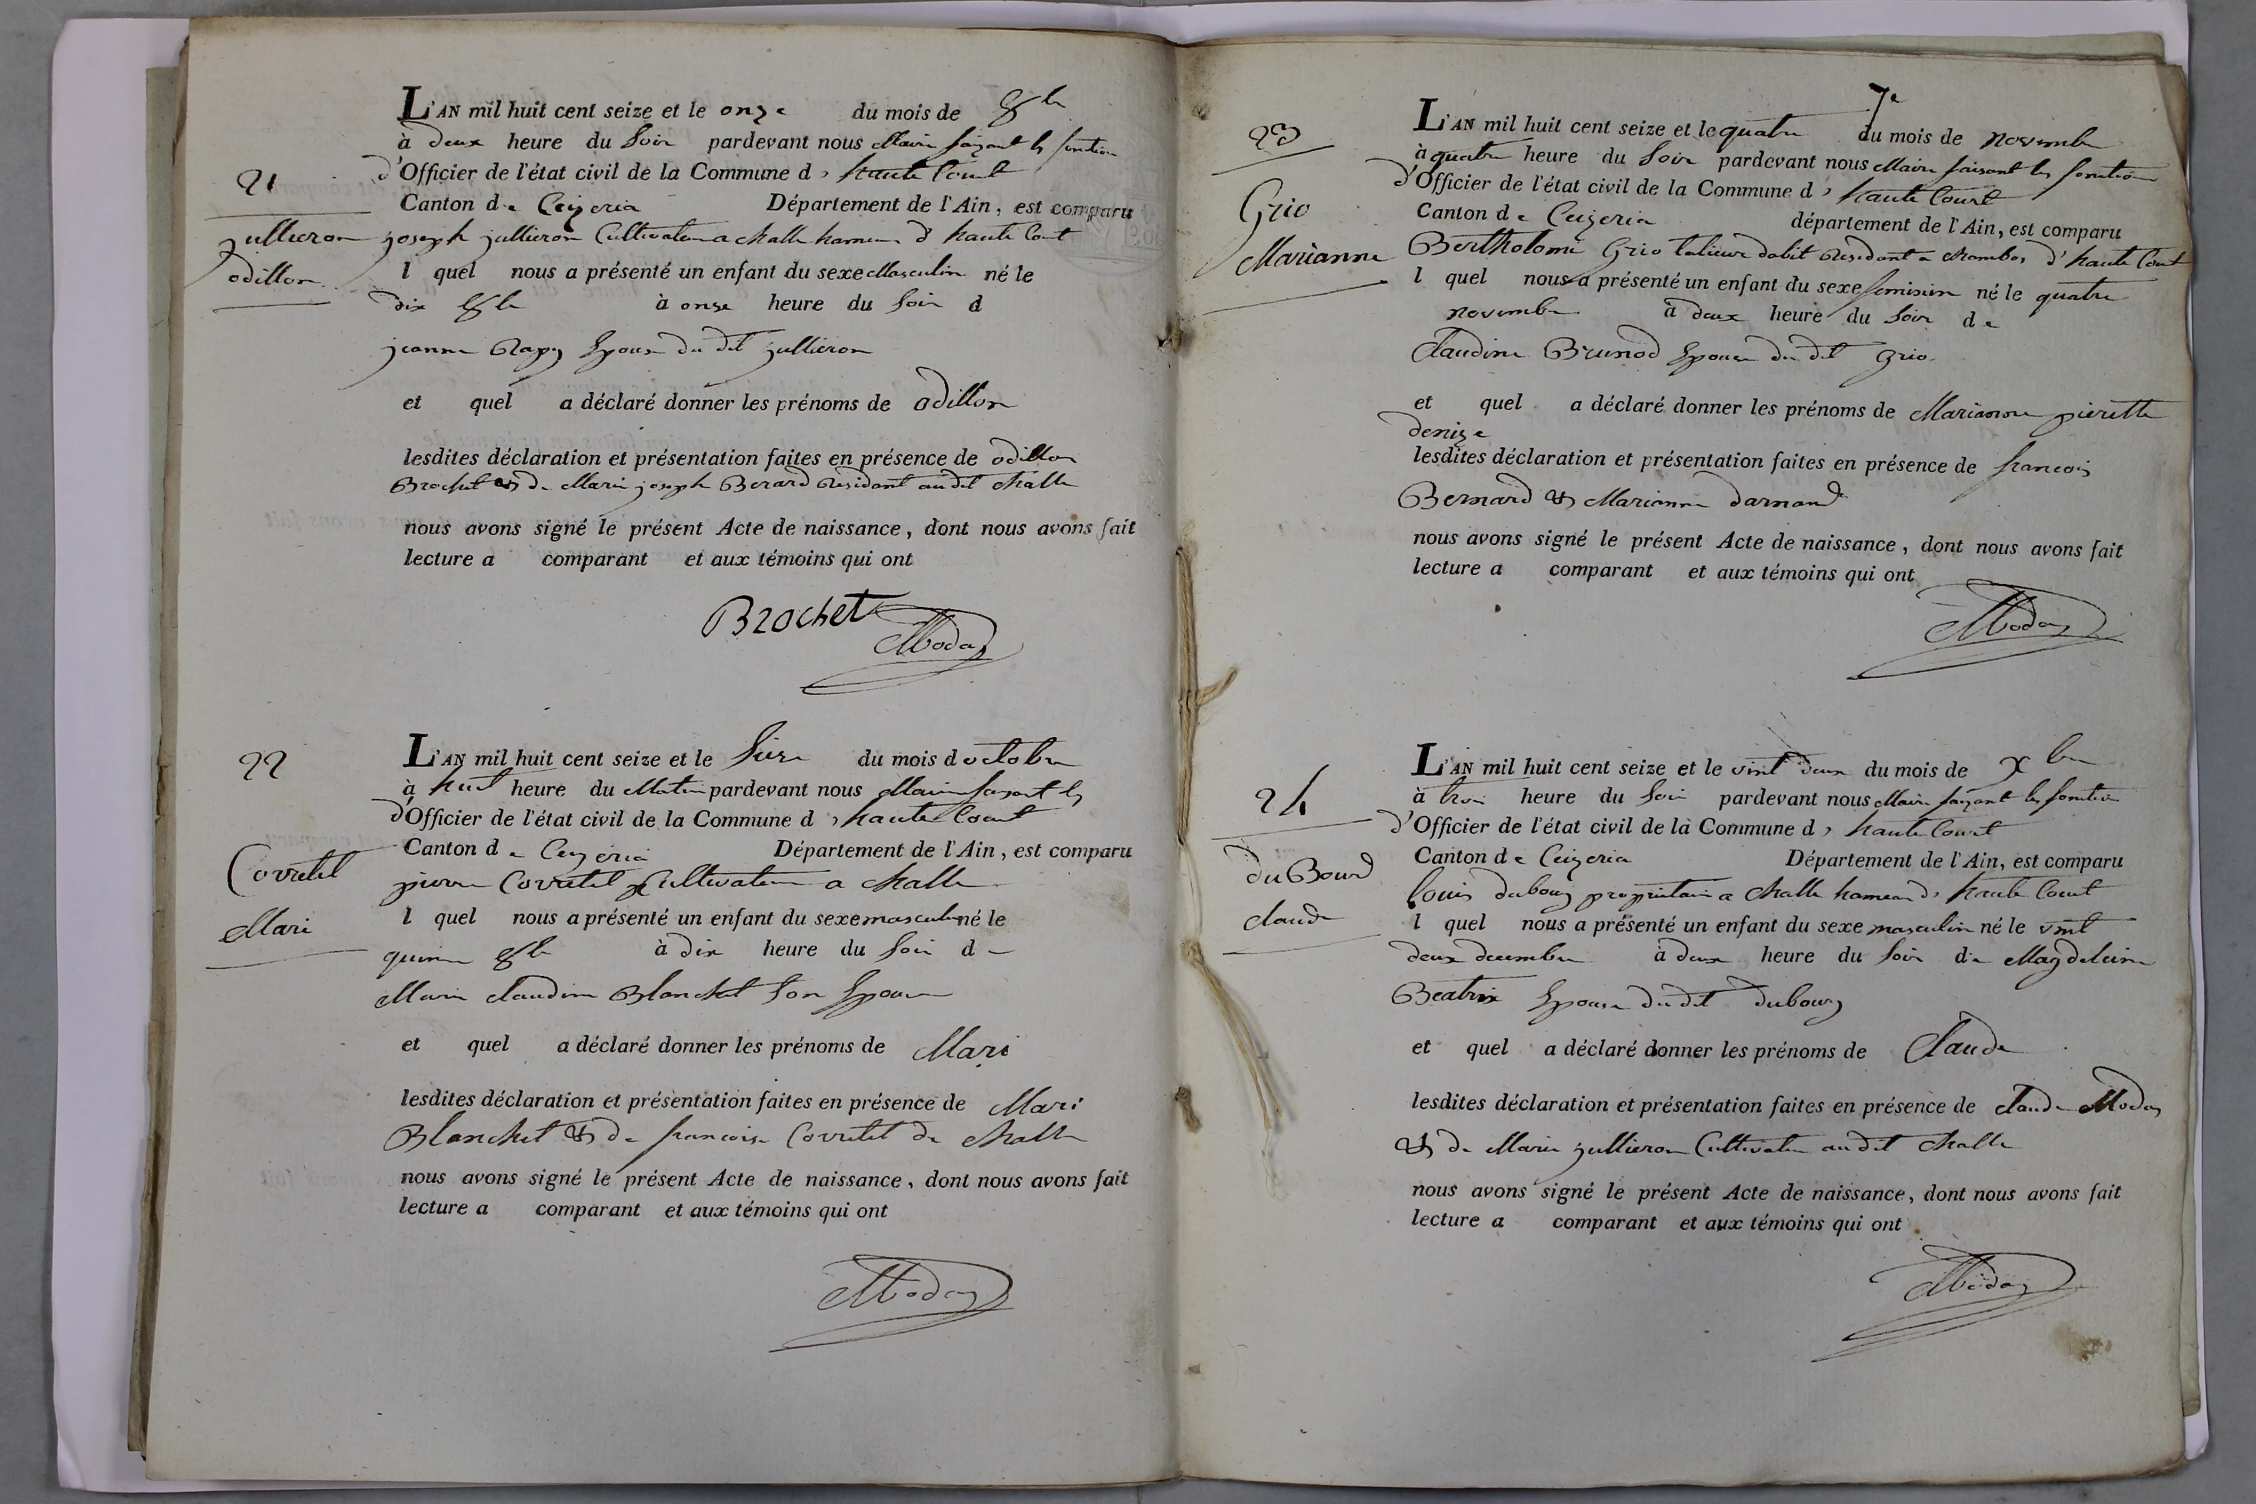 L'AN mil huit cent seize et le onze du mois de 8bre
à deux heure du soir pardevant nous Maire faisant les fonction
d'Officier de l'état civil de la Commune d haute Court
Canton de Ceyzeria Département de l'Ain, est comparu
21
jullieron
odillon
joseph jullieron Cultivateur a challe hameau d haute Court
l quel nous a présenté un enfant du sexe Masculin né le
dix 8bre à onze heure du soir d
jeanne Rapy Epouse du dit jullieron
et quel a déclaré donner les prénoms de odillon
lesdites déclaration et présentation faites en présence de odillon
Brochet & de Marie joseph Berard Residant au dit challe
nous avons signé le présent Acte de naissance, dont nous avons fait
lecture a comparant et aux témoins qui ont
Brochet
Moday
22
Corretel
Mari
L'AN mil huit cent seize et le seize du mois d octobre
à huit heure du Matin pardevant nous Maire faisant les
d'Officier de l'état civil de la Commune d haute Court
Canton de Ceyzeria Département de l'Ain, est comparu
pierre Corretel Cultivateur a challe
l quel nous a présenté un enfant du sexe masculin né le
quinze 8bre à dix heure du soir de
Marie claudine Blanchet son Epouse
et quel a déclaré donner les prénoms de Mari
lesdites déclaration et présentation faites en présence de Mari
Blanchet & de francoise Corretel de challe
nous avons signé le présent Acte de naissance, dont nous avons fait
lecture a comparant et aux témoins qui ont
Moday
7e
23
Grio
Marianne
L'AN mil huit cent seize et le quatre du mois de novembre
à quatre heure du soir pardevant nous Maire faisant les fonction
d'Officier de l'état civil de la Commune d haute Court
Canton de Ceyzeria département de l'Ain, est comparu
Bertholome Grio talieur dabit Residant a chambos d'haute Court
l quel nous a présenté un enfant du sexe feminin né le quatre
novembre à deux heure du soir de
Claudine Brunod Epouse du dit grio
et quel a déclaré donner les prénoms de Marianne pierette
denize
lesdites déclaration et présentation faites en présence de francois
Bernard & Marianne darnand
nous avons signé le présent Acte de naissance, dont nous avons fait
lecture a comparant et aux témoins qui ont
Moday
24
du Bourd
claude
L'AN mil huit cent seize et le vint deux du mois de Xbre
à troi heure du soir pardevant nous Maire faisant les fonction
d'Officier de l'état civil de la Commune d haute Court
Canton de Ceyzeria Département de l'Ain, est comparu
louis dubourg proprietaire a challe hameau d haute Court
l quel nous a présenté un enfant du sexe masculin né le vint
deux decembre à deux heure du soir de Magdeleine
Beatrix Epouse du dit dubourg
et quel a déclaré donner les prénoms de Claude
lesdites déclaration et présentation faites en présence de claude Moday
& de Marie jullieron Cultivateur au dit challe
nous avons signé le présent Acte de naissance, dont nous avons fait
lecture a comparant et aux témoins qui ont
Moday